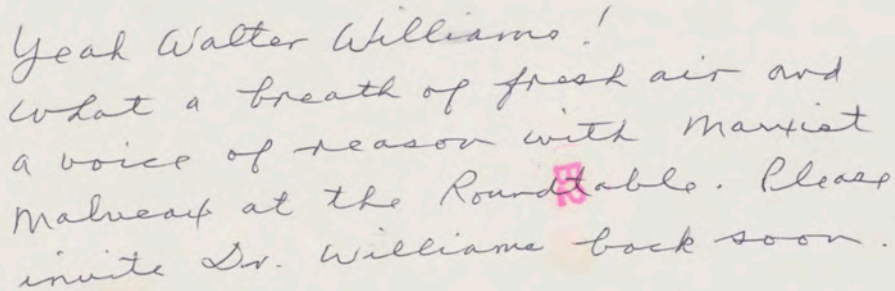 Yeah Walter Williams!
What a breath of fresh air and
a voice of reason with Marxist
Malveaux at the Roundtable. Please
invite Dr. Williams back soon.